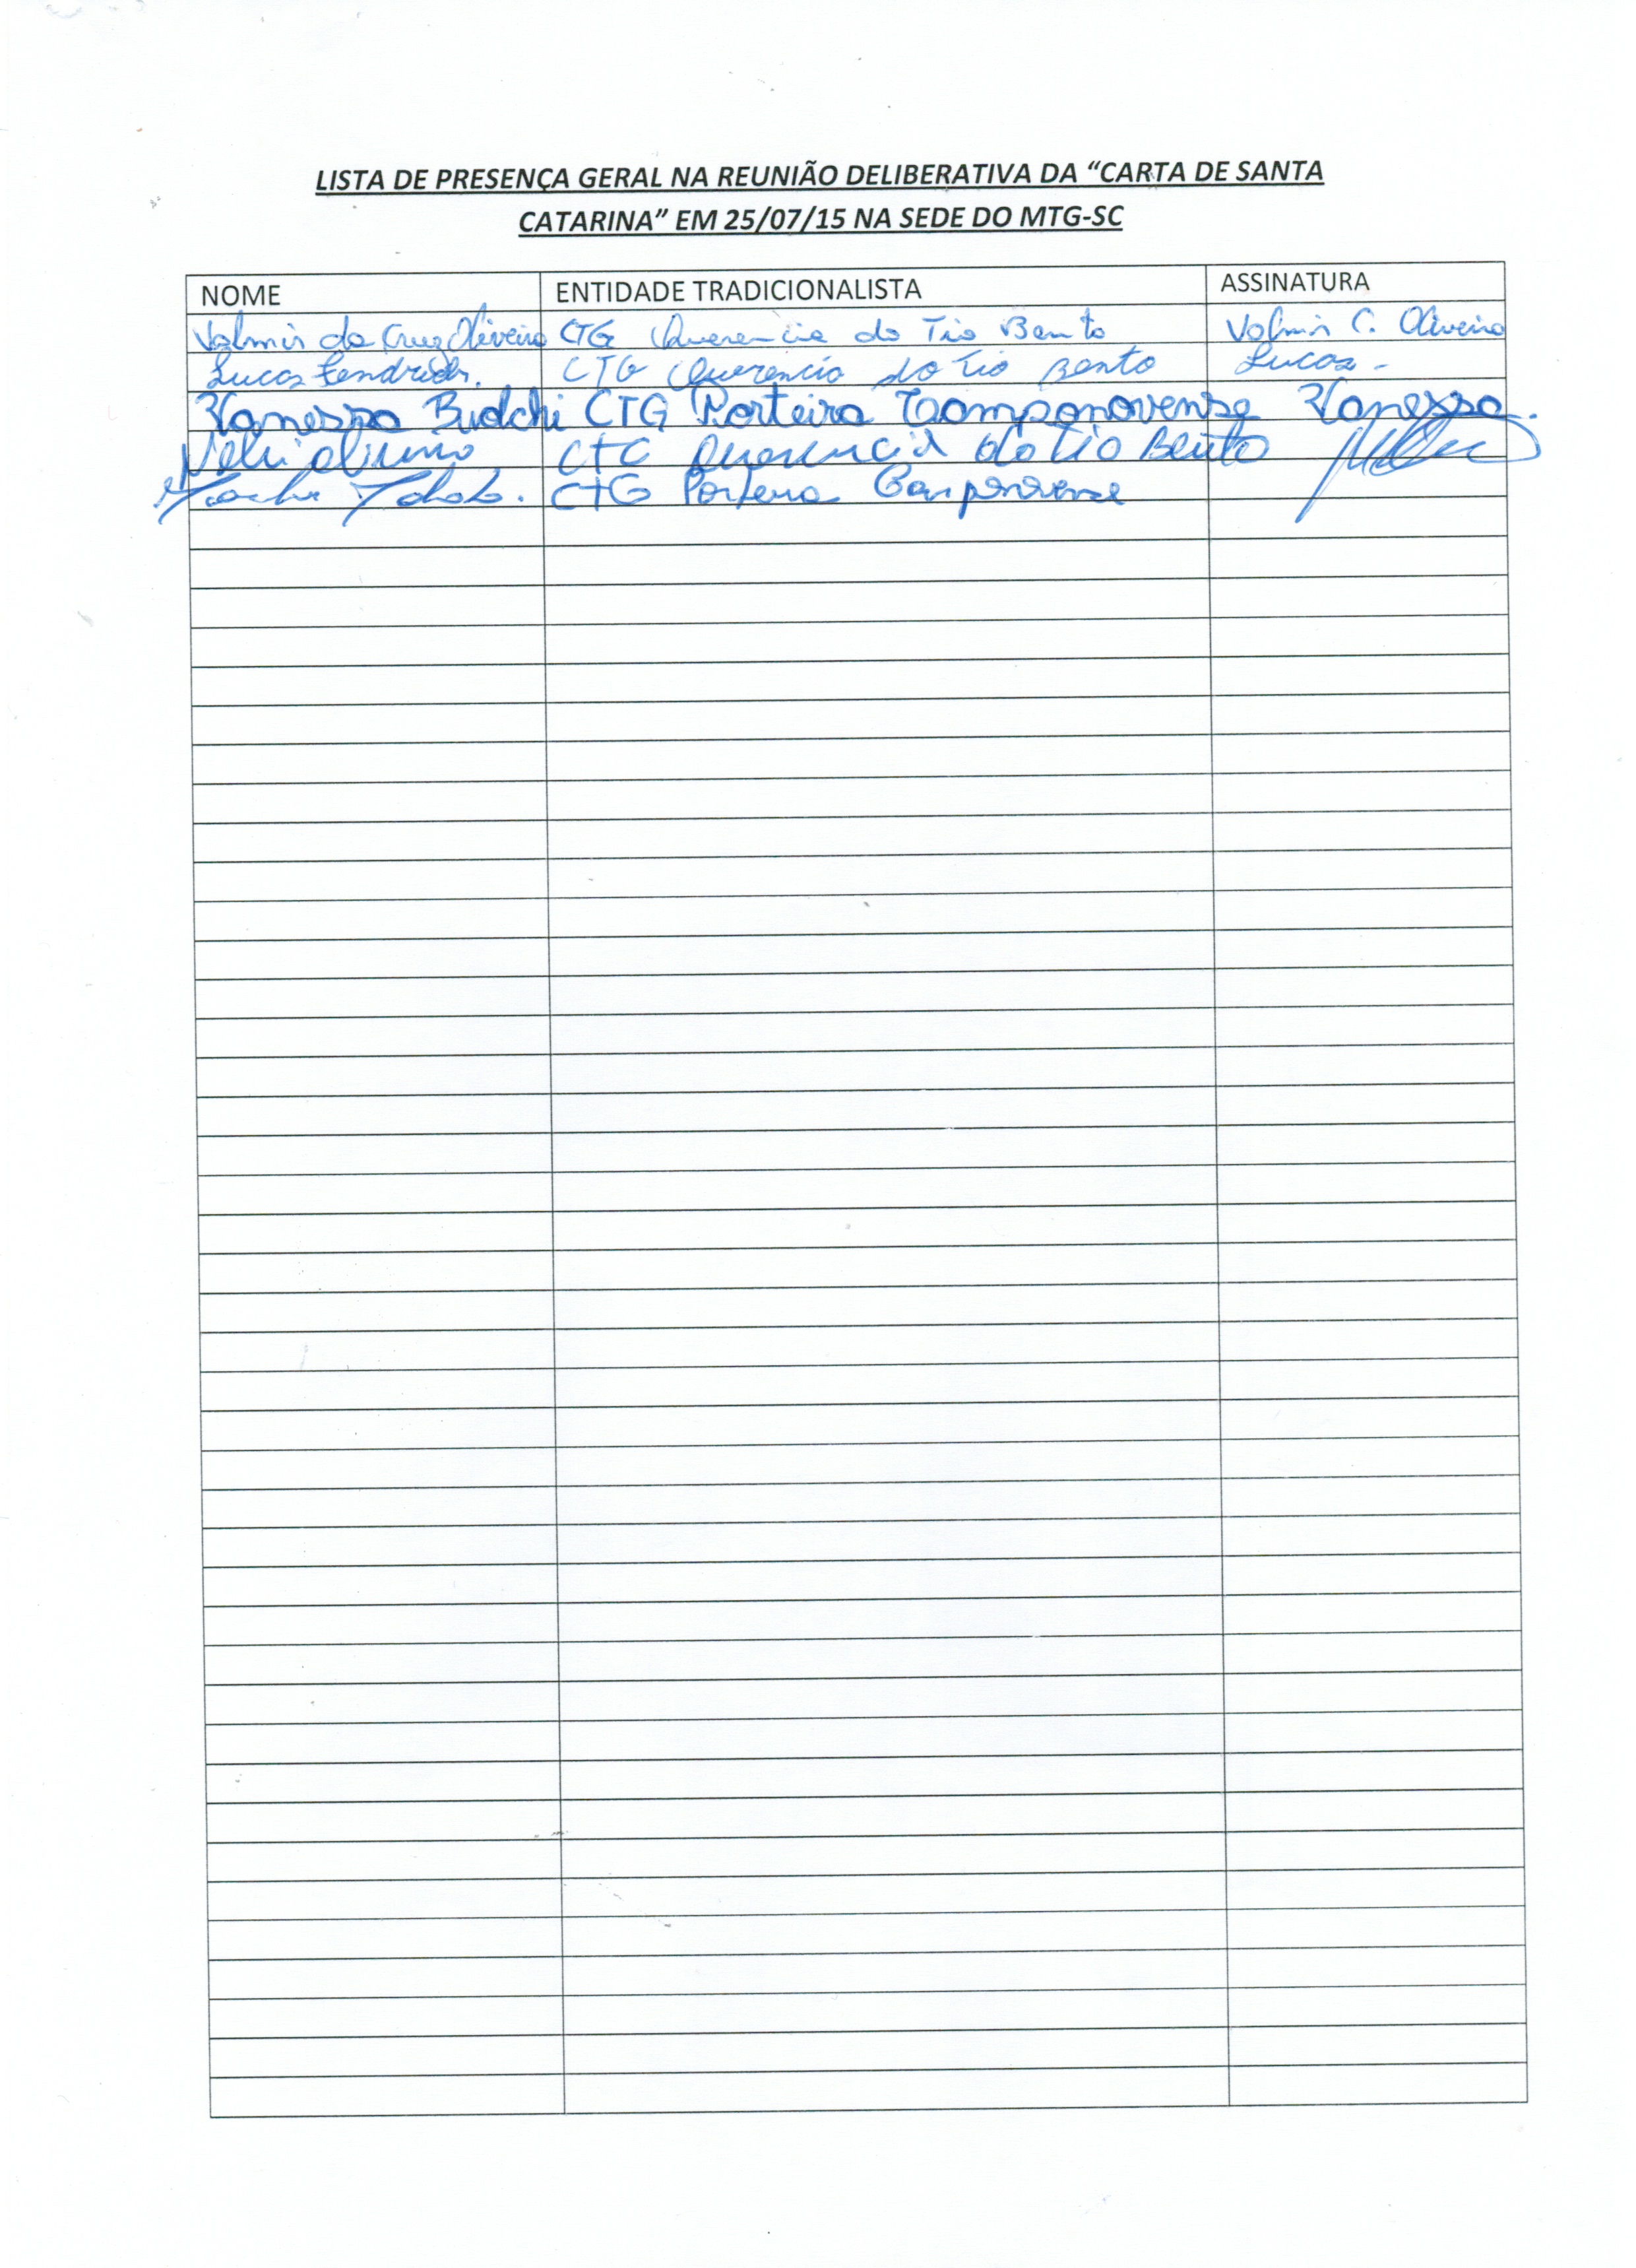 LISTA DE PRESENÇA GERAL NA REUNIÃO DELIBERATIVA DA “CARTA DE SANTA
CATARINA” EM 25/07/15 NA SEDE DO MTG-SC
NOME ENTIDADE TRADICIONALISTA ASSINATURA
Valmir da Cruz Oliveira CTG Querencia do Tio Bento Valmir C. Oliveira
Lucas Fendrich. CTG Querencia do Tio Bento Lucas -
Vanessa CTG Porteira Camponovense Vanessa.
CTG Querencia do Tio Bento
CTG Porteira